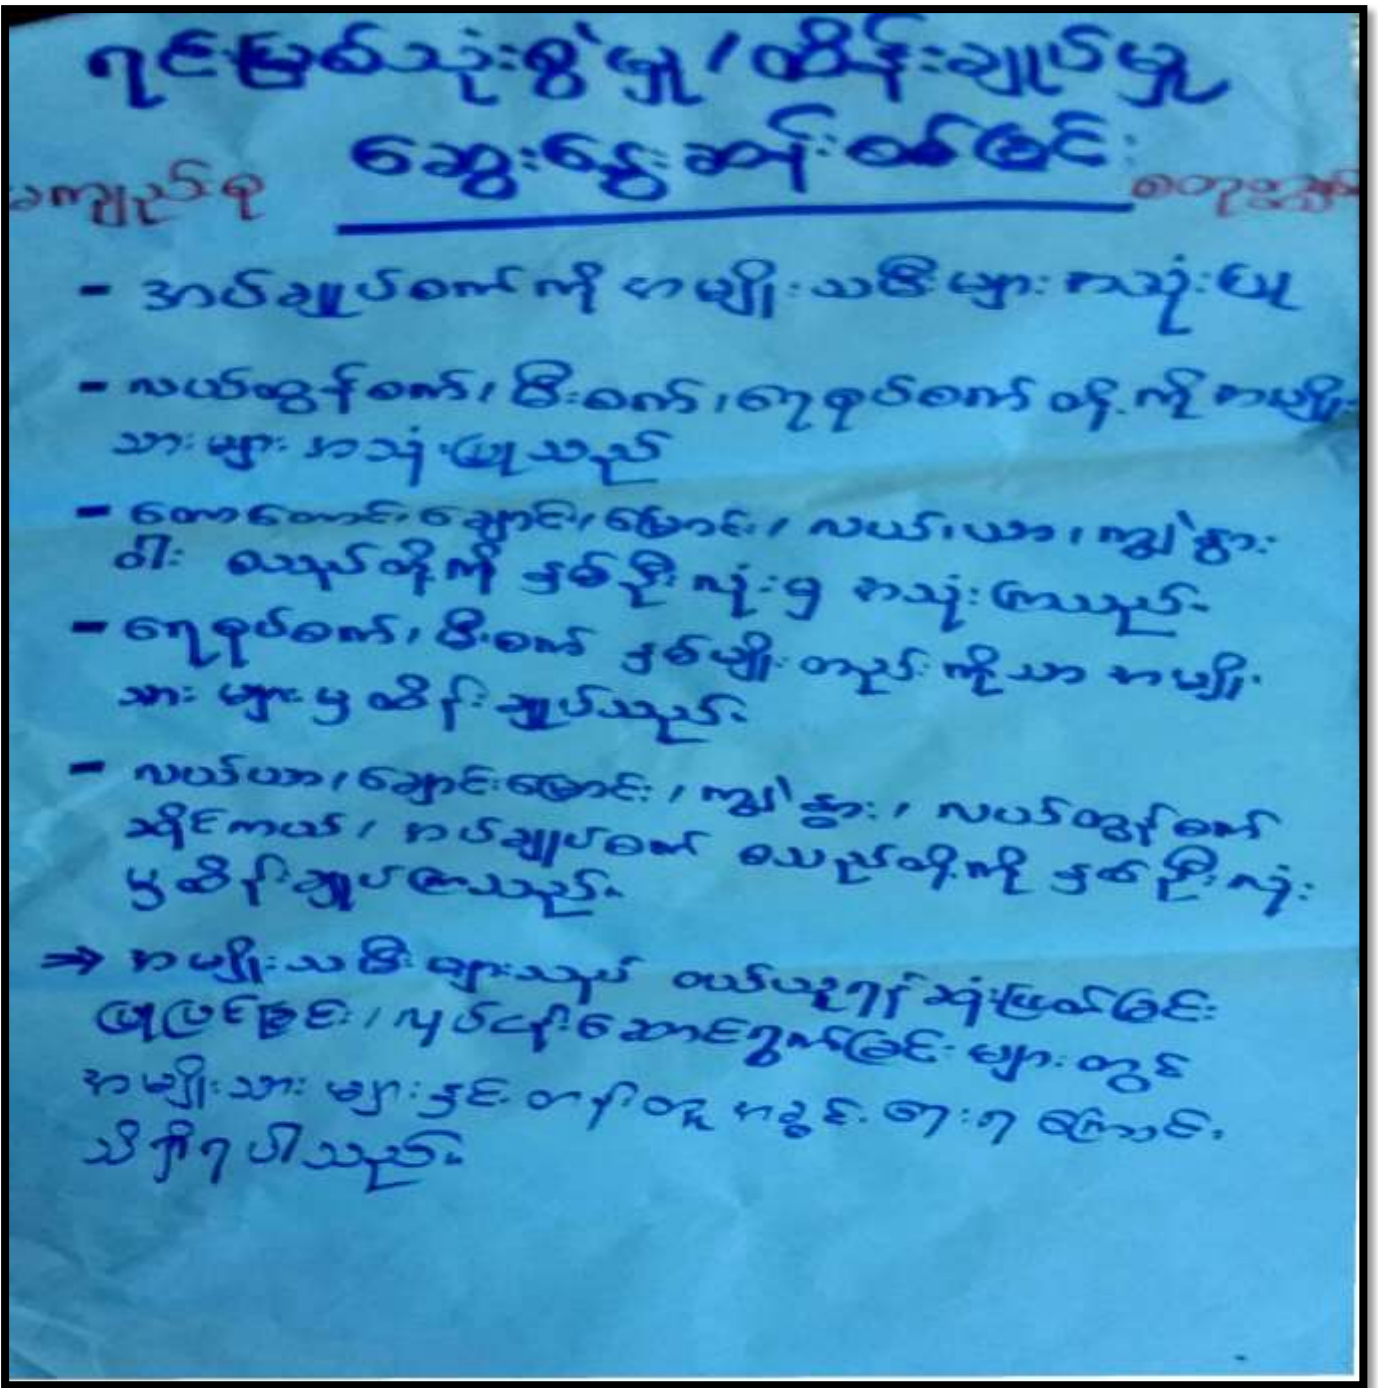 ရင်းမြစ်သုံးစွဲမှု/ထိန်းချုပ်မှု
ဆွေးနွေးဆန်းစစ်ခြင်း
မကျည်းစု
- အပ်ချုပ်စက်ကို အမျိုးသမီးများ အသုံးပြု
- လယ်ထွန်စက်၊ မီးစက်၊ ရေစုပ်စက် တို့ကို အမျိုး
သားများ အသုံးပြုသည်
- တောတောင်၊ ချောင်း၊ မြောင်း၊ လယ်၊ ယာ၊ ကျွဲ၊ နွား
ဝါး စသည်တို့ကို နှစ်ဦးလုံးမှ အသုံးကြသည်။
- ရေစုပ်စက်၊ မီးစက် နှစ်မျိုးတည်းကိုသာ အမျိုး
သားများမှ ထိန်းချုပ်သည်။
- လယ်ယာ၊ ချောင်းမြောင်း၊ ကျွဲ၊ နွား၊ လယ်ထွန်စက်
ဆိုင်ကယ်၊ အပ်ချုပ်စက် စသည်တို့ကို နှစ်ဦးလုံး
မှထိန်းချုပ်ကြသည်။
⇒ အမျိုးသမီးများသည် ဝယ်ယူရန်ဆုံးဖြတ်ခြင်း
ပြုပြင်ခြင်း၊ လုပ်ငန်းဆောင်ရွက်ခြင်းများတွင်
အမျိုးသားများနှင့် တန်းတူ အခွင့်အရေးရကြောင်း
သိရှိရပါသည်။